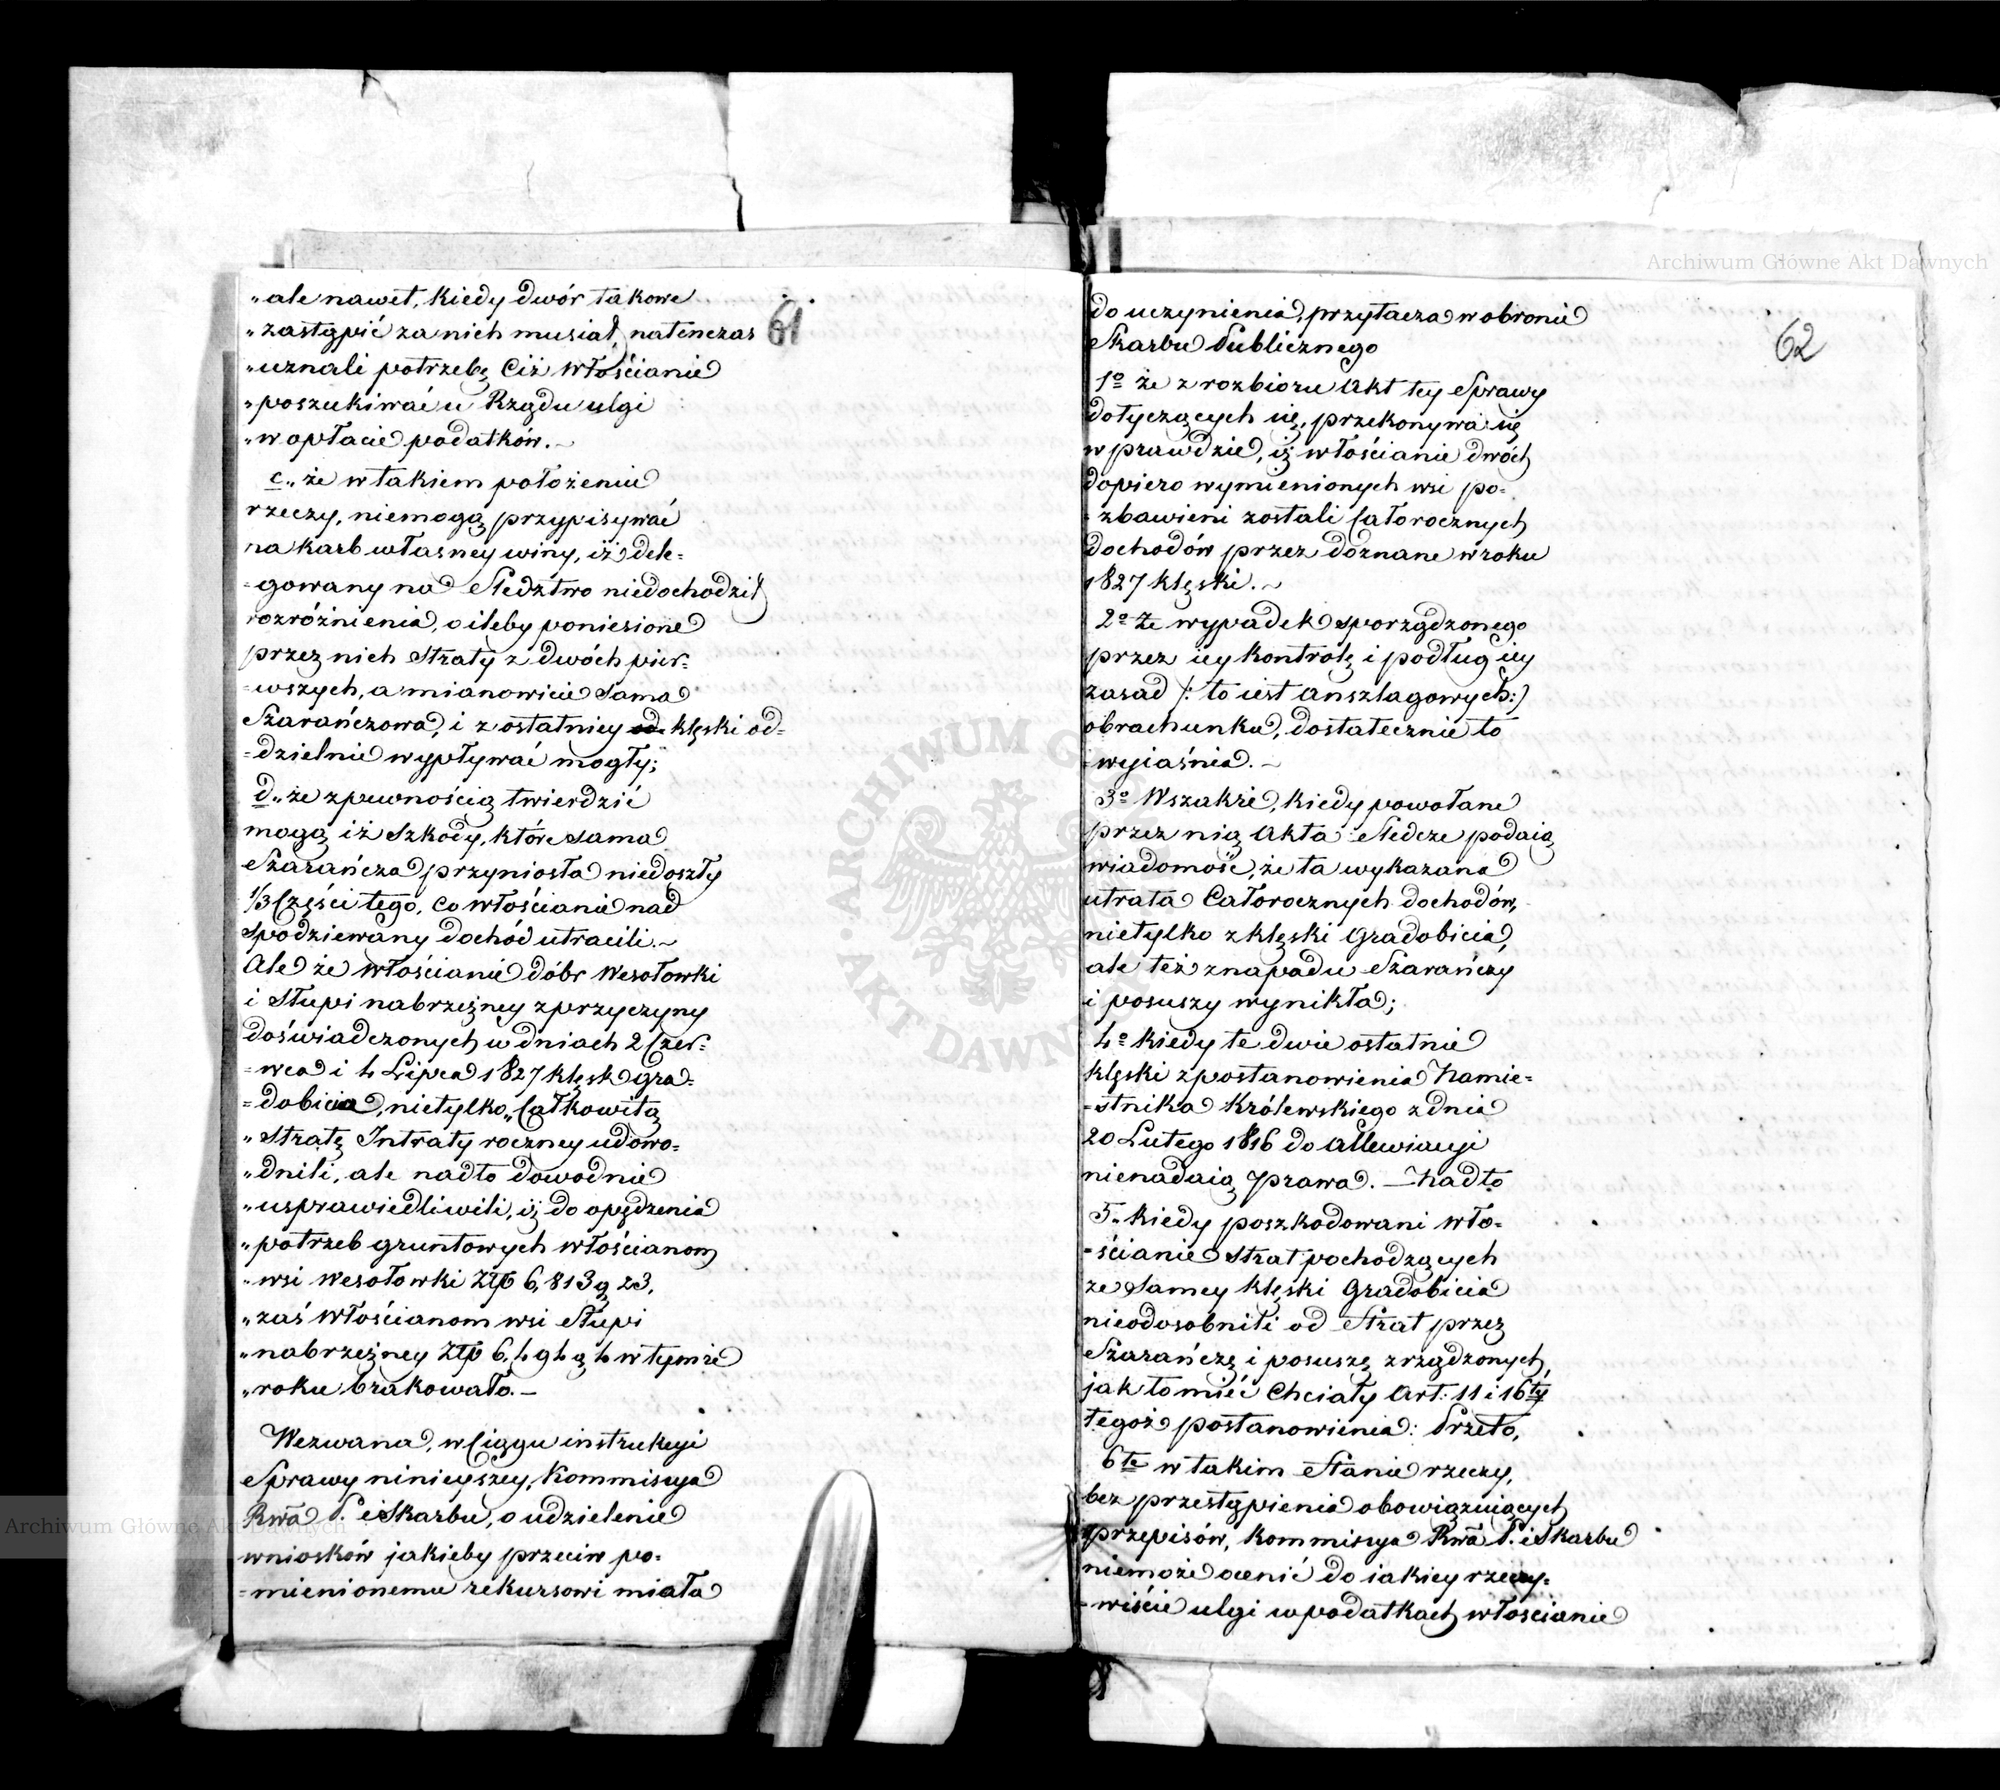 61
„ale nawet, kiedy dwór takowe
„zastąpić za nich musiał, natenczas
„uznali potrzebę Ciż włościanie
„poszukiwać u Rządu ulgi
„w opłacie podatków.~
c„ że w takiem położeniu
rzeczy, niemogą przypisywać
na karb własney winy, iż dele=
=gowany na Sledztwo niedochodził
rozróżnienia, o ileby poniesione
przez nich Straty z dwóch pier=
=wszych, a mianowicie sama
Szarańczowa, i z ostatniey od klęski od=
=dzielnie wypływać mogły;
d„ że z pewnością twierdzić
mogą iż szkody, które sama
Szarańcza przyniosła niedoszły
1/3 Części tego, co włościanie nad
spodziewany dochód utracili.~
Ale że włościanie dóbr Wesołowki
i Słupi nabrzeżney z przyczyny
doświadczonych w dniach 2 Czer=
=wca i 4 Lipca 1827 klęsk gra=
=dobicia, nietylko „Całkowitą
„Stratę Intraty roczney udowo=
„dnili, ale nadto dowodnie
„usprawiedliwili, iż do opędzenia
„potrzeb gruntowych włościanom
„wsi Wesołowki Złp 6,813 g 23,
„zaś włościanom wsi Słupi
„nabrzeżney Złp 6,494 g 4 w tymże
„roku brakowało.—
Wezwana, w Ciągu instrukcyi
Sprawy ninieyszey, Kommissya
Rwa P. i Skarbu, o udzielenie
wniosków jakieby przeciw po=
=mienionemu rekursowi miała
62
do uczynienia, przytacza w obronie
Skarbu Publicznego
1o że z rozbioru Akt tey Sprawy
dotyczących się, przekonywa się
w prawdzie, iż włościanie dwóch
dopiero wymienionych wsi po=
=zbawieni zostali Całorocznych
dochodów przez doznane w roku
1827 klęski.~
2o Że wypadek sporządzonego
przez iey kontrolę i podług iey
zasad /: to iest anszlagowych:/
obrachunku, dostatecznie to
wyiaśnia.~
3o Wszakże, kiedy powołane
przez nią Akta Sledcze podaią
wiadomość, że ta wykazana
utrata Całorocznych dochodów,
nietylko z klęski Gradobicia,
ale też z napadu Szarańczy
i posuszy wynikła;
4o kiedy te dwie ostatnie
klęski z postanowienia Namie=
=stnika Królewskiego z dnia
20 Lutego 1816 do allewiacyi
nienadaią prawa. — Nadto
5„ kiedy poszkodowani wło=
=ścianie strat pochodzących
ze samey klęski Gradobicia
nieodosobnili od Strat przez
Szarańczę i posuszę zrządzonych,
jak to mieć Chciały Art: 11 i 16ty
tegoż postanowienia: Przeto,
6te w takim Stanie rzeczy,
bez przestąpienia obowiązuiących
przepisów, Kommissya Rwa P. i Skarbu
niemoże ocenić do iakiey rzeczy=
=wiście ulgi w podatkach włoscianie
Archiwum Główne Akt Dawnych
Archiwum Główne Akt Dawnych